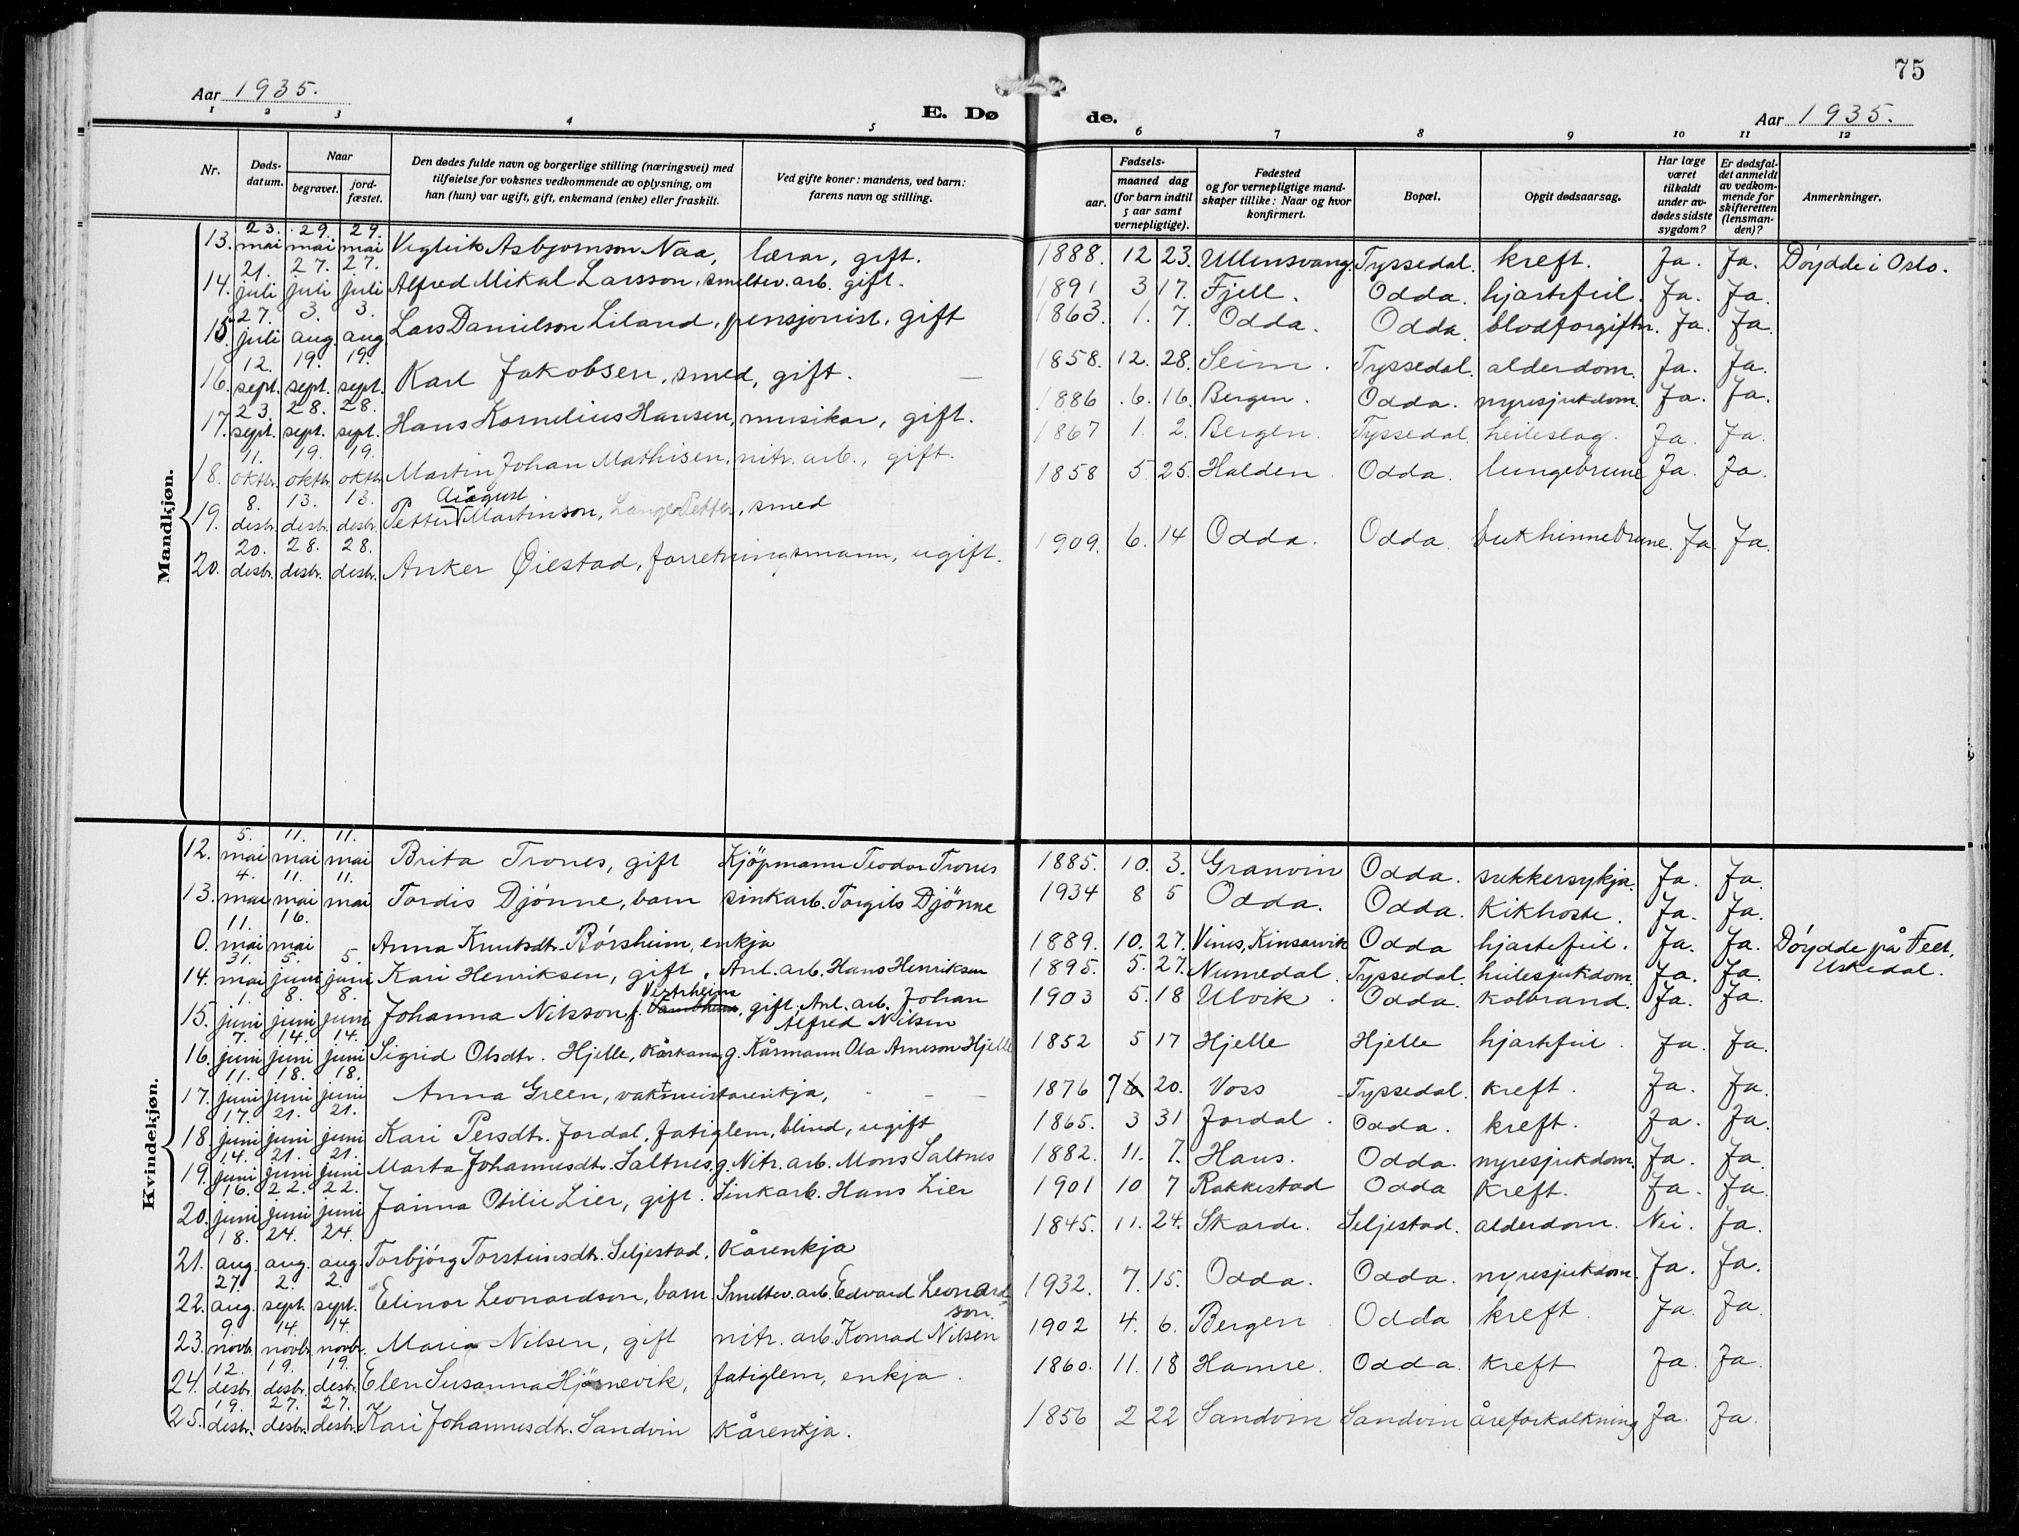 75
Aar 1935.
E. Dø
de.
Aar 1935.
1 2 3 4 5 6 7 8 9 10 11 12
Nr.
Døds-
datum.
Naar
begravet.
jord-
fæstet.
Den dødes fulde navn og borgerlige stilling (næringsvei) med
tilføielse for voksnes vedkommende av oplysning, om
han (hun) var ugift, gift, enkemand (enke) eller fraskilt.
Ved gifte koner: mandens, ved barn:
farens navn og stilling.
Fødsels-
aar.
maaned dag
(for barn indtil
5 aar samt
vernepligtige).
Fødested
og for vernepligtige mand-
skaper tillike: Naar og hvor
konfirmert.
Bopæl.
Opgit dødsaarsag.
Har læge
været
tilkaldt
under av-
dødes sidste
sygdom?
Er dødsfal-
det anmeldt
av vedkom-
mende for
skifteretten
(lensman-
den)?
Anmerkninger.
Mandkjøn.
13. 23. mai 29. mai 29. mai Viglrik Asbjørnson Naa, lærar, gift. 1888. 12 23. Ullensvang Tyssedal. kreft. Ja. Ja. Døydde i Oslo.
14. 21. juli 27. juli 27. juli Alfred Mikal Larsson, smeltev. arb. gift. 1891 3 17. Fjell. Odda. hjartefeil. Ja. Ja.
15. 27. juli 3. aug. 3. aug. Lars Danielson Liland, pensjonist, gift 1863. 1. 7. Odda. Odda. blodforgiftn. Ja. Ja.
16. 12. sept. 19. sept. 19. sept. Karl Jakobsen, smed, gift. 1858. 12. 28. Seim. Tyssedal. alderdom. Ja. Ja.
17. 23. sept. 28. sept. 28. sept. Hans Kornelius Hansen, musikar, gift. 1886 6. 16. Bergen. Odda. nyresjukdom. Ja. Ja.
18. 11. oktbr. 19. oktbr. 19. oktbr. Martin Johan Mathisen, nitr. arb., gift. 1867 1. 2. Bergen. Tyssedal heileslag. Ja. Ja.
19. 8. desbr. 13. desbr. 13. desbr. Petter August Martinson, Lange Petter, smed 1858 5. 25. Halden. Odda. lungebrune Ja. Ja.
20. 20. desbr. 28. desbr. 28. desbr. Anker Øiestad, forretningsmann, ugift. 1909. 6. 14 Odda. Odda. bukhinnebrune. Ja. Ja.
Kvindekjøn.
12. 5. mai 11. mai 11. mai Brita Trones, gift Kjøpmann Teodor Trones 1885. 10. 3. Granvin Odda. sukkersykja. Ja. Ja.
13. 4. mai 11. mai 11. mai Tordis Djønne, barn sinkarb. Torgils Djønne 1934 8 5 Odda. Odda. Kikhoste. Ja. Ja.
0. 11. mai 16. mai Anna Knutsdtr. Børsheim, enkja 1889. 10. 27. Vines, Kinsarvik Odda hjartefeil. Ja. Ja. Døydde på Feet, Uskedal.
14. 31. mai 5. juni 5. juni Kari Henriksen, gift. Anl. arb. Hans Henriksen 1895. 5. 27. Numedal. Tyssedal. heilesjukdom. Ja. Ja.
15. 1. juni 8. juni 8. juni Johanna Nilsson, f. Vestrheim, gift. Anl. arb. Johan Alfred Nilsen 1903 5. 18 Ulvik. Odda. kolbrand. Ja. Ja.
16. 7. juni 14. juni 14. juni Sigrid Olsdtr. Hjelle, kårkana, g. Kårmann Ola Arneson Hjelle 1852 5 17 Hjelle Hjelle hjartefeil. Ja. Ja.
17. 11. juni 18. juni 18. juni Anna Green, vaktmeistarenkja, 1876 7 20. Voss Tyssedal. kreft. Ja. Ja.
18. 17. juni 21. juni 21. juni Kari Persdtr. Jordal, fatiglem, blind, ugift 1865. 3 31 Jordal. Odda. kreft. Ja. Ja.
19. 14. juni 21. juni 21. juni Marta Johannesdtr. Saltnes, g. Nitr. arb. Mons Saltnes 1882. 11. 7. Haus. Odda. nyresjukdom. Ja. Ja.
20. 16. juni 22. juni 22. juni Janna Otilie Lier, gift. Sinkarb. Hans Lier 1901 10 7 Rakkestad Odda kreft. Ja. Ja.
21. 18. aug. 24. aug. 24. aug. Torbjørg Torsteinsdtr. Seljestad, Kårenkja 1845. 11. 24. Skarde. Seljestad. alderdom. Nei. Ja.
22. 27. aug. 2. sept. 2. sept. Elinor Leonardson, barn. Smeltev. arb. Edvard Leonardson. 1932. 7. 15. Odda. Odda. nyresjukdom. Ja. Ja.
23. 9. novbr. 14. novbr. 14. novbr. Maria Nilsen, gift nitr. arb. Konrad Nilsen 1902 4. 6. Bergen Odda kreft. Ja. Ja.
24. 12. desbr. 19. desbr. 19. desbr. Elen Susanna Hjørnevik, fatiglem, enkja. 1860. 11. 18 Hamre. Odda. kreft Ja. Ja.
25. 19. desbr. 27. desbr. 27. desbr. Kari Johannesdtr. Sandvin Kårenkja. 1856 2 22 Sandvin Sandvin åreforkalkning Ja. Ja.